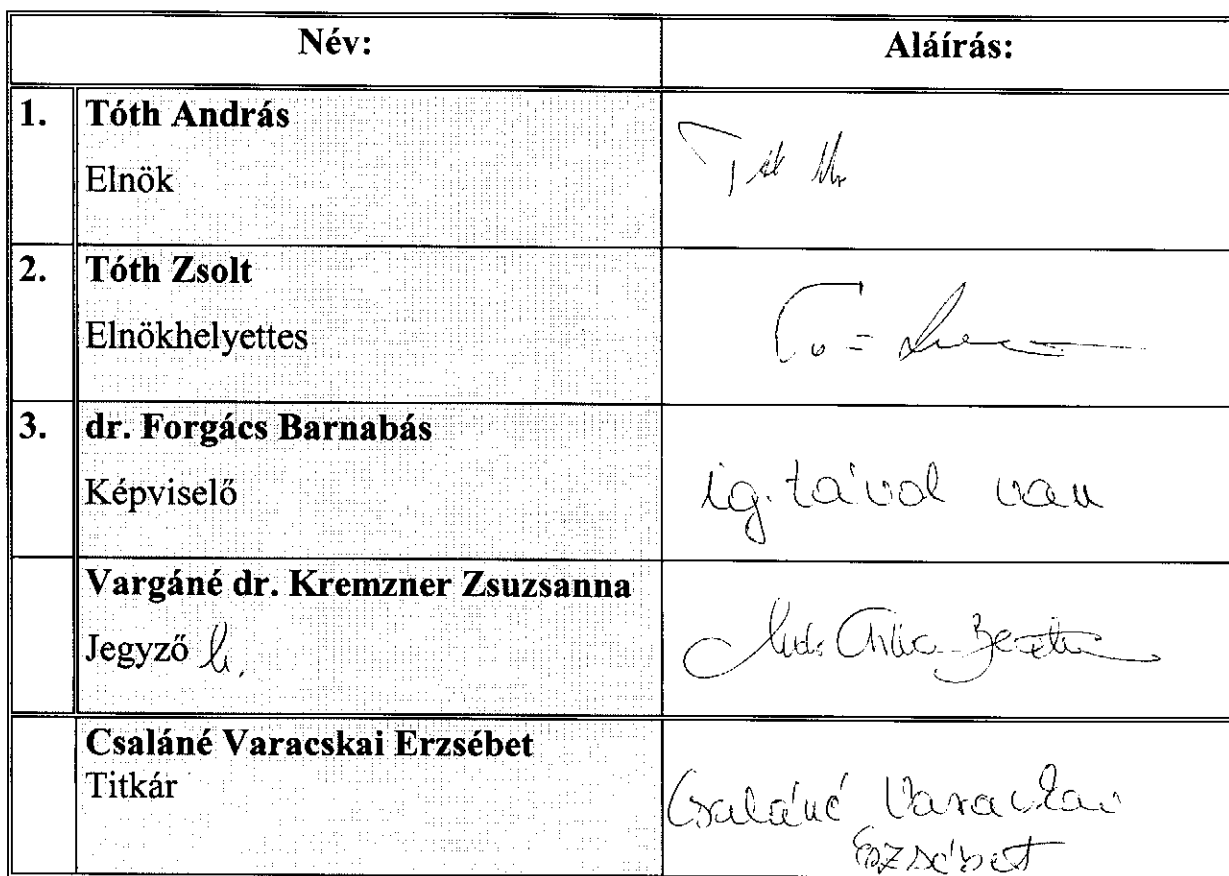 Név: Aláírás:
1. Tóth András
Elnök
2. Tóth Zsolt
Elnökhelyettes
3. dr. Forgács Barnabás
Képviselő ig. távol van
Vargáné dr. Kremzner Zsuzsanna
Jegyző h.
Csaláné Varacskai Erzsébet
Titkár
Csaláné Varacskai
Erzsébet